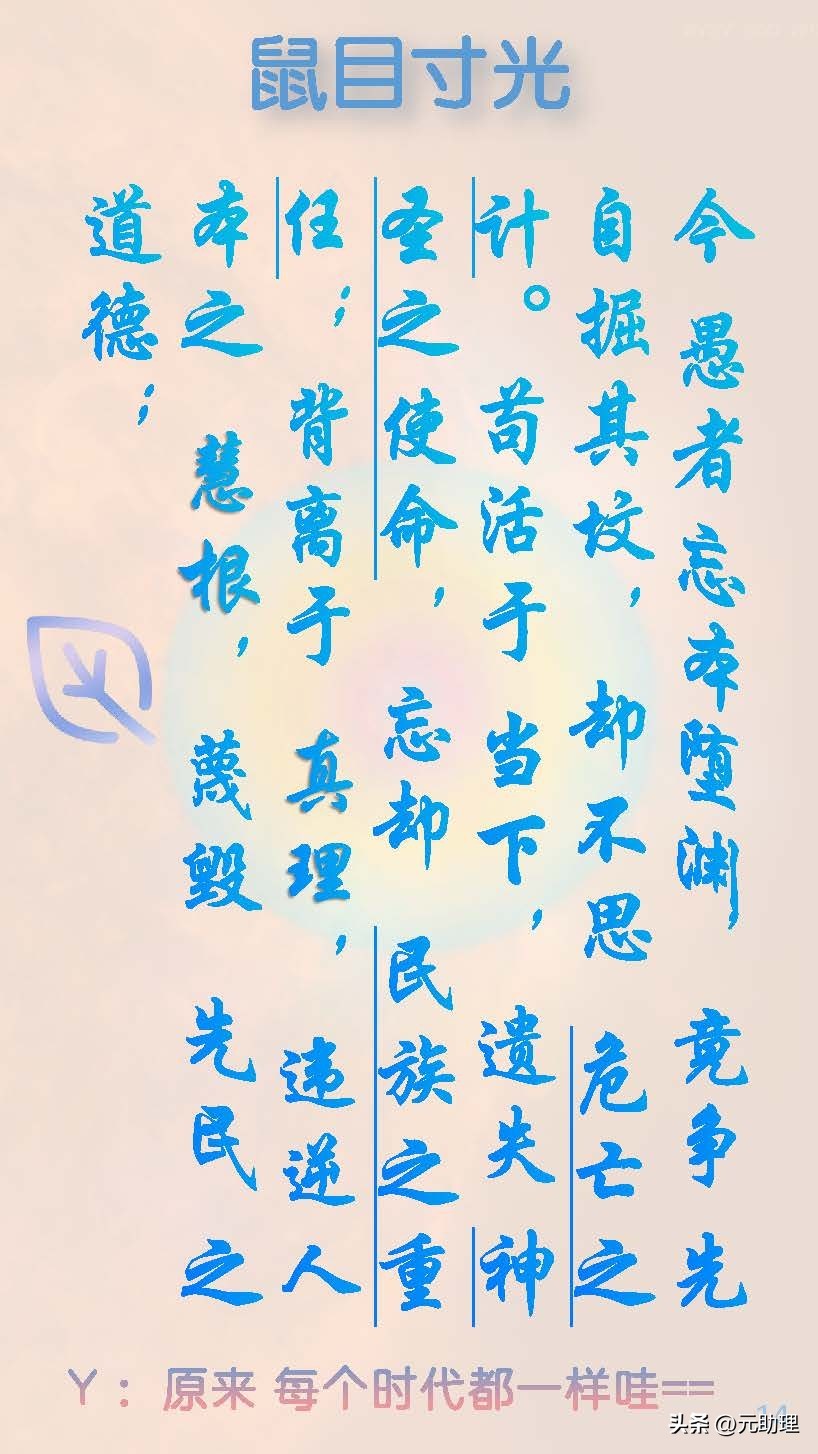 鼠目寸光
今 愚者 忘本堕渊， 竟争先
自掘其坟， 却不思 危亡之
计。 苟活于 当下， 遗失 神
圣之使命， 忘却 民族之重
任； 背离于 真理， 违逆人
本之 慧根， 蔑毁 先民 之
道德；
Y： 原来 每个时代都一样哇==
14
头条 @元助理